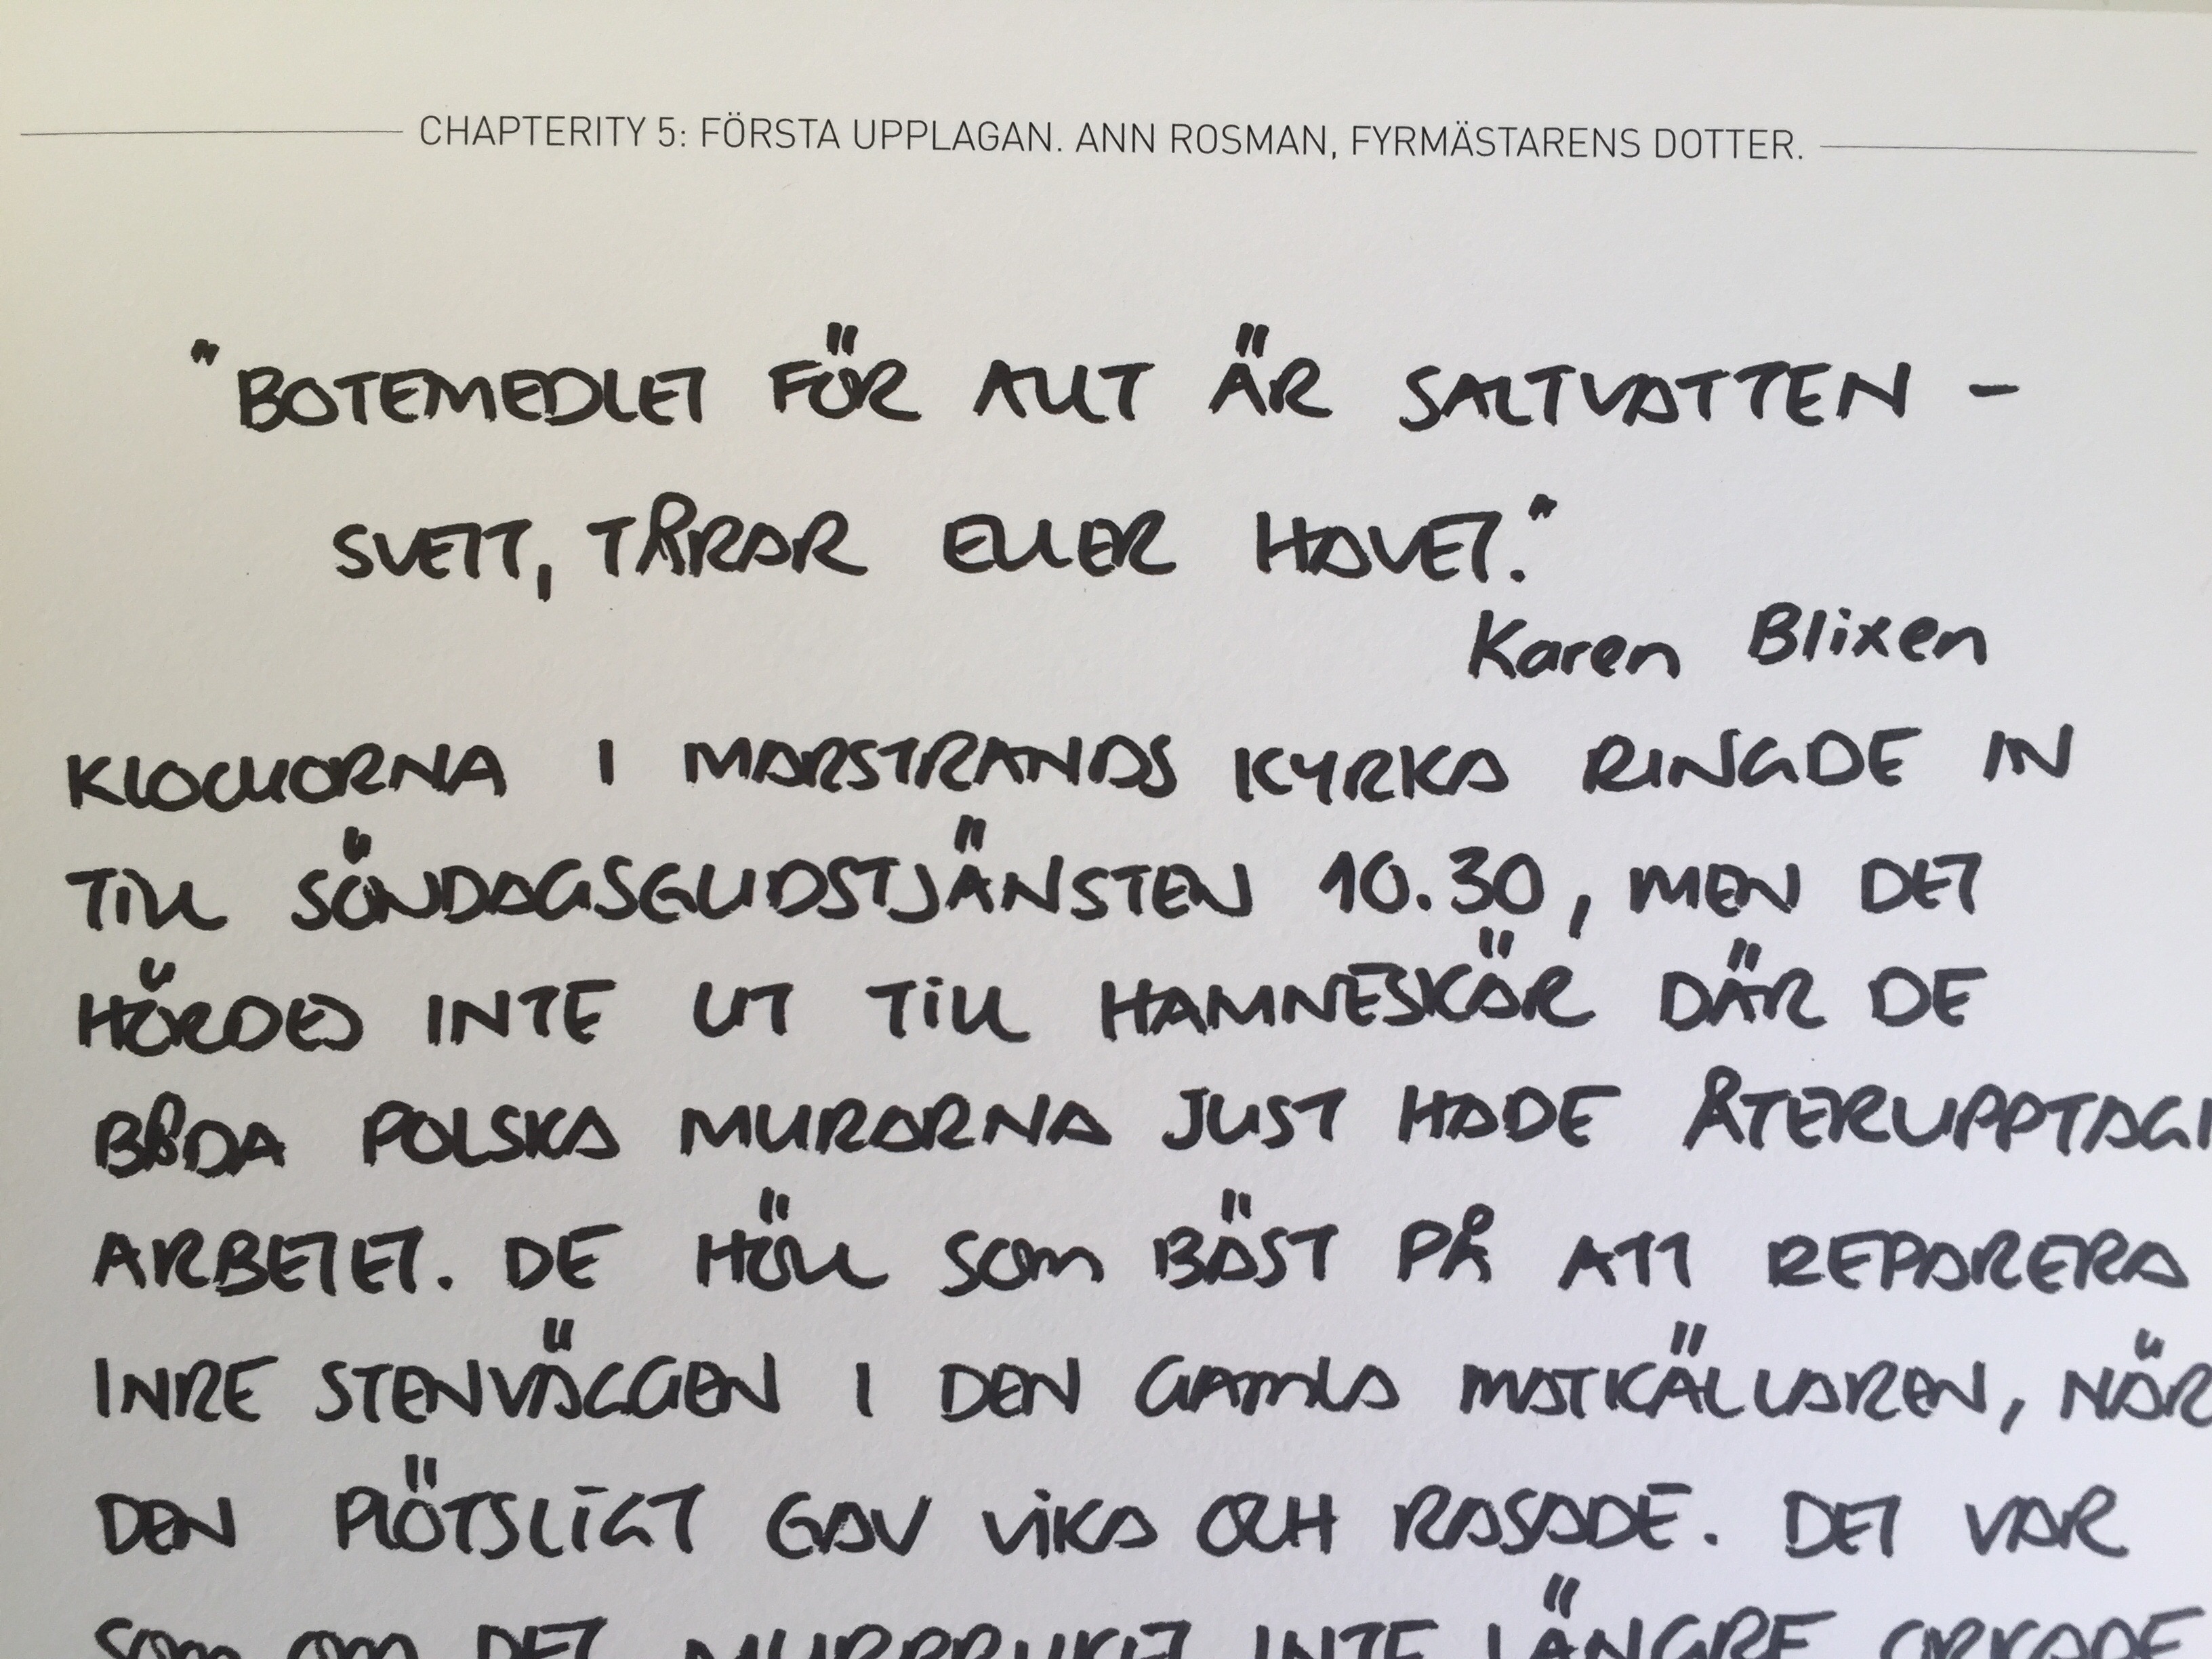 CHAPTERITY 5: FÖRSTA UPPLAGAN. ANN ROSMAN, FYRMÄSTARENS DOTTER.
"BOTEMEDLET FÖR ALLT ÄR SALTVATTEN –
SVETT, TÅRAR ELLER HAVET."
Karen Blixen
KLOCKORNA I MARSTRANDS KYRKA RINGDE IN
TILL SÖNDAGSGUDSTJÄNSTEN 10.30, MEN DET
HÖRDES INTE UT TILL HAMNESKÄR DÄR DE
BÅDA POLSKA MURARNA JUST HADE ÅTERUPPTAGI
ARBETET. DE HÖLL SOM BÄST PÅ ATT REPARERA
INRE STENVÄGGEN I DEN GAMLA MATKÄLLAREN, NÄR
DEN PLÖTSLIGT GAV VIKA OCH RASADE. DET VAR
SOM OM DET MURBRUKET INTE LÄNGRE ORKADE